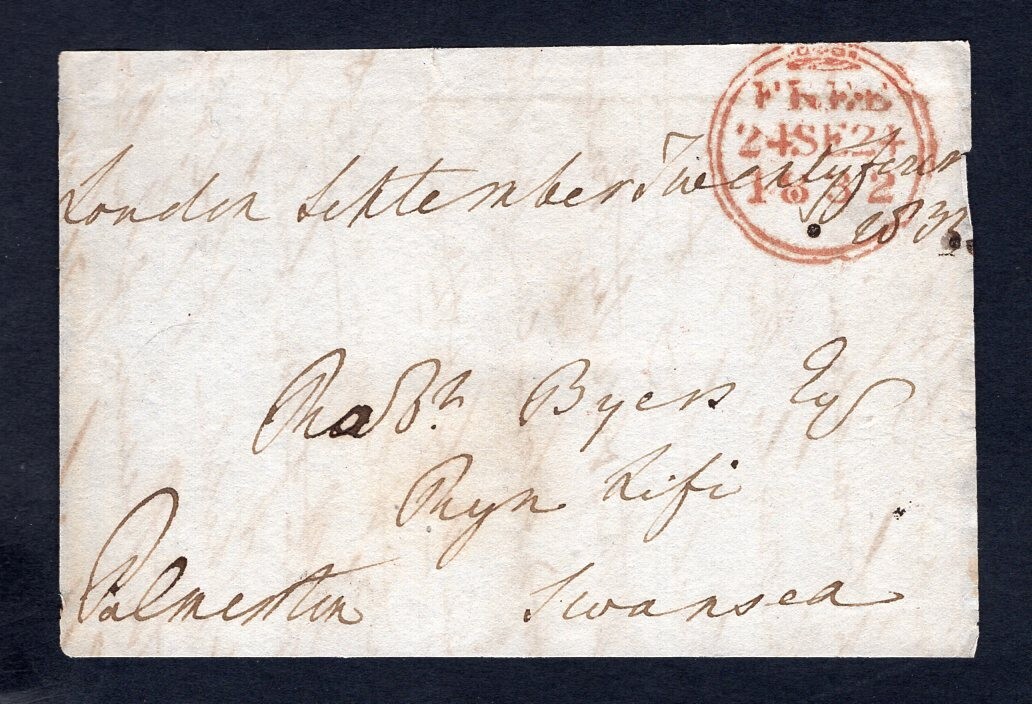 FREE
24SE24
1832
London September Twentyfour
1832
Byers Esq
Swansea
Palmerston